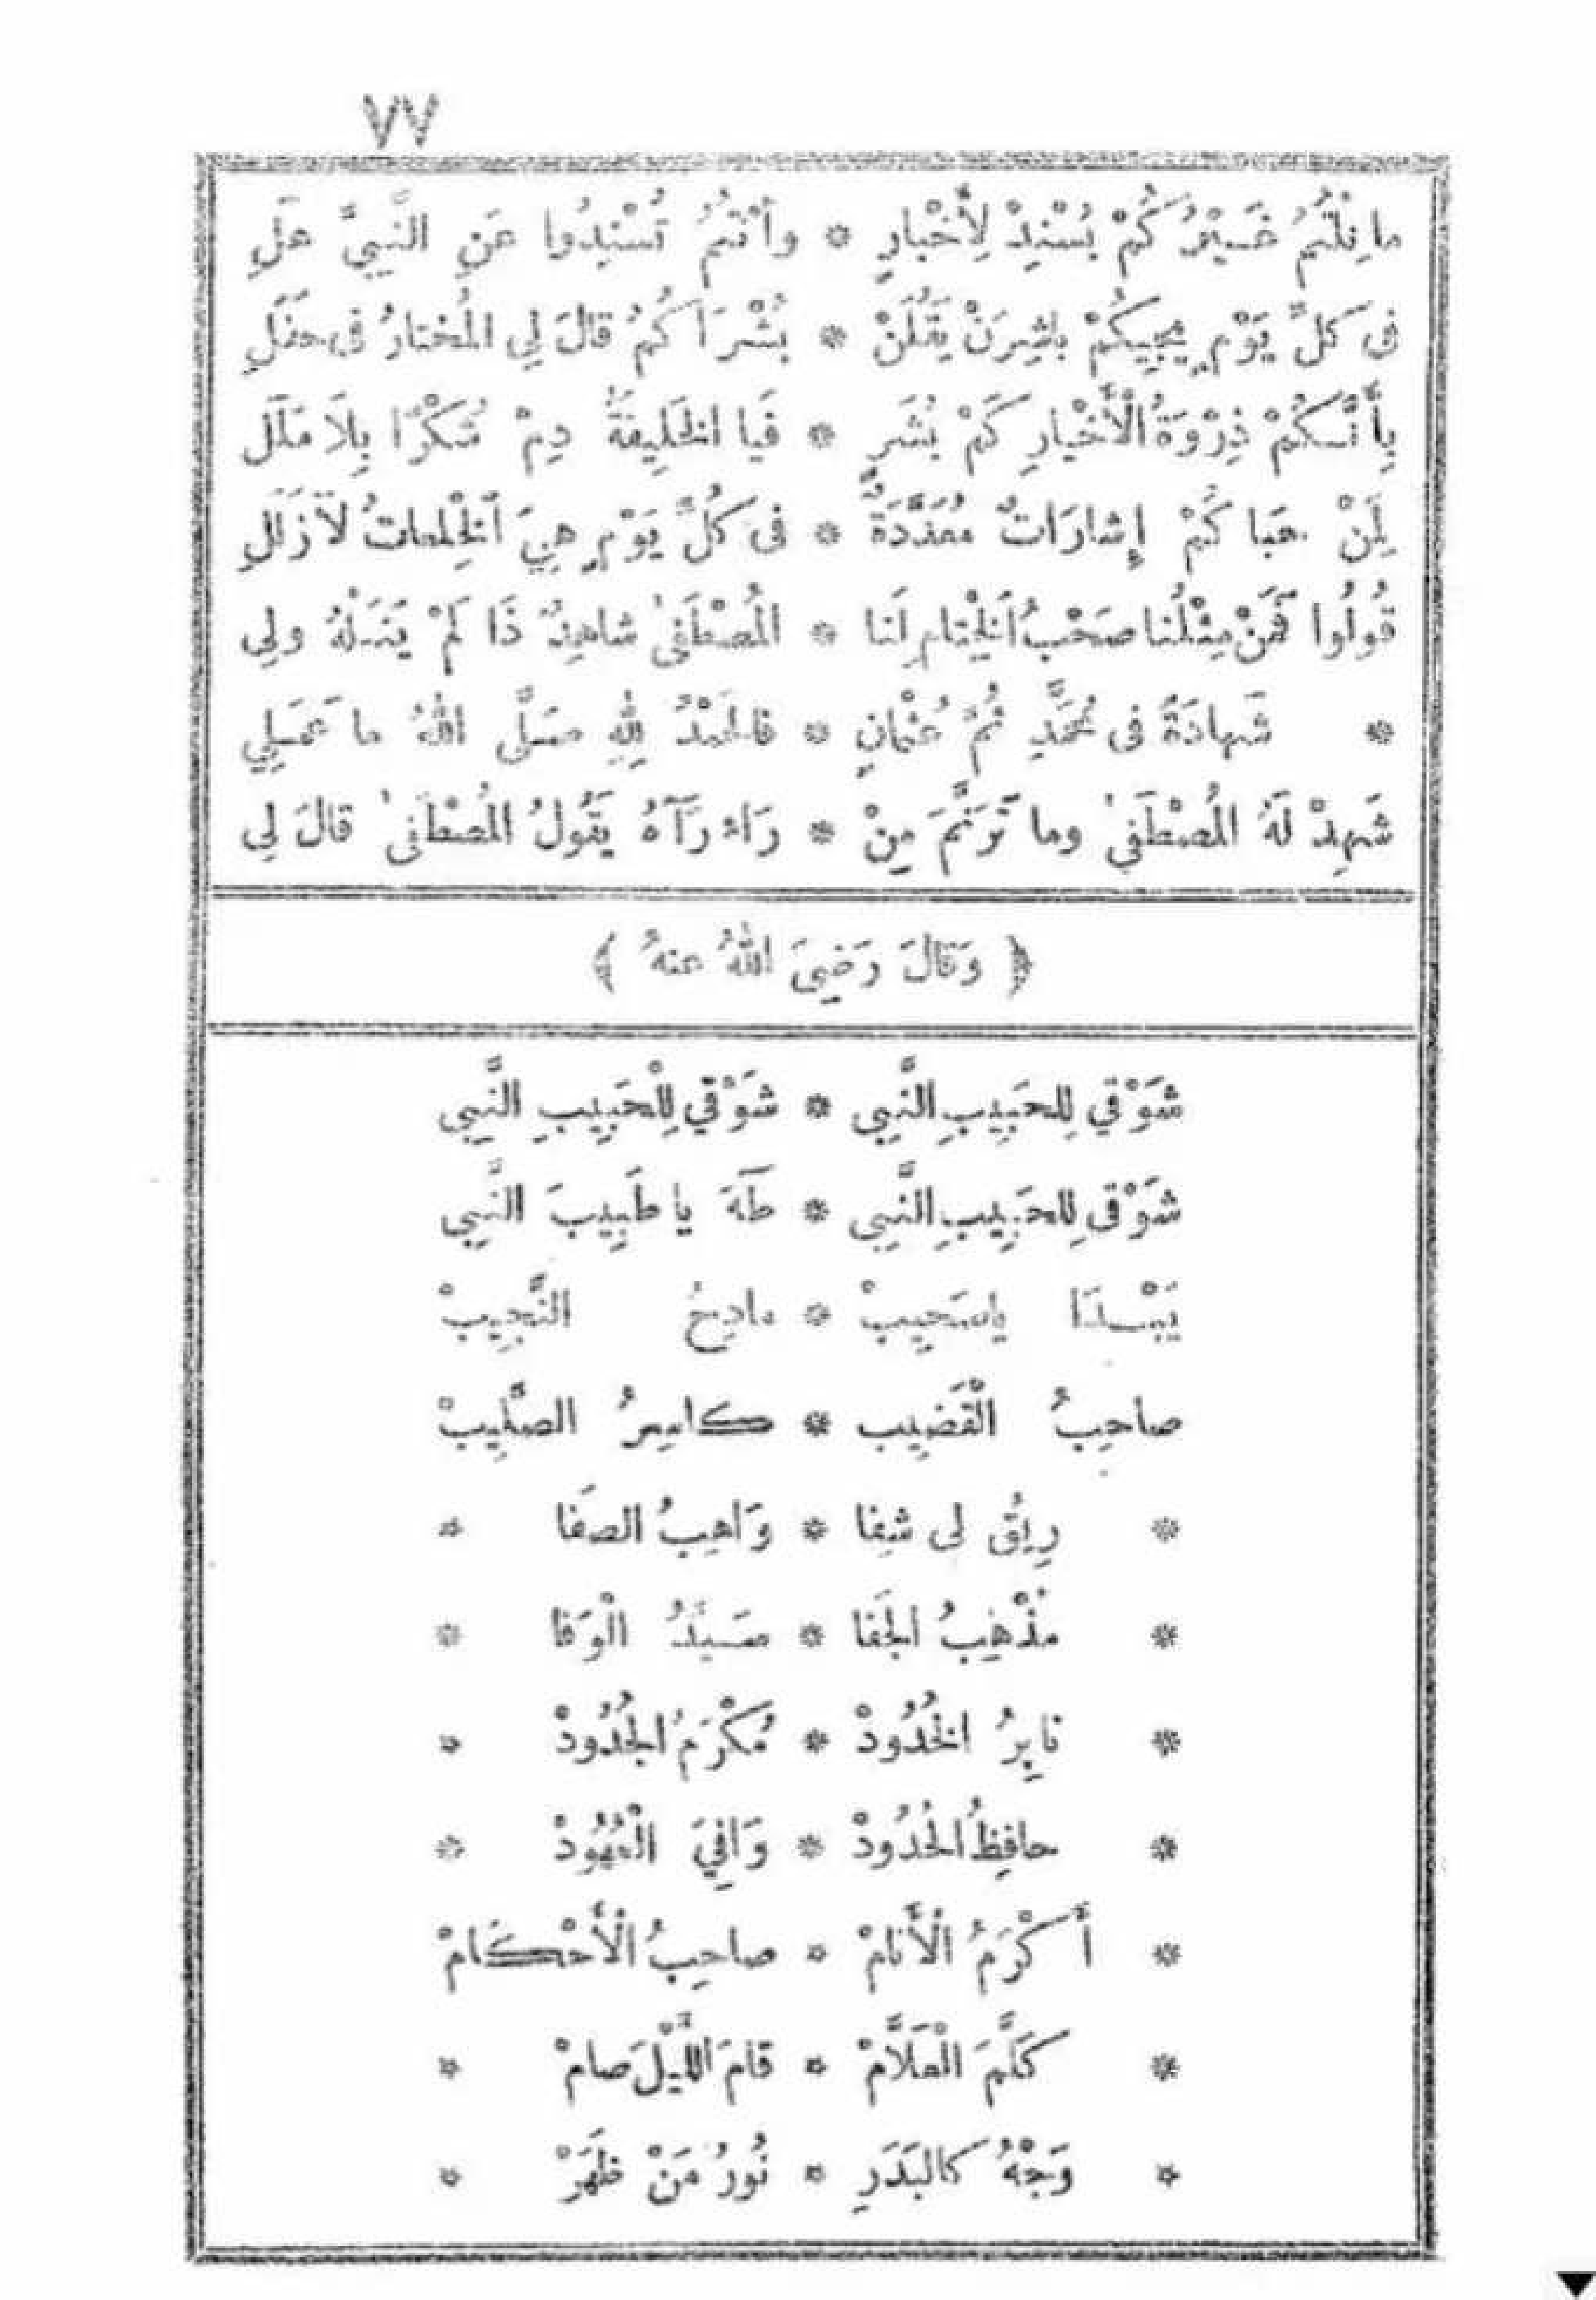 ٧٧
ما نِلْتُمُ غَيْرُكُمْ يُسْنِدْ لِأَخْبارٍ * وأَنْتُمُ تُسْنِدُوا عَنِ النَّبِيَّ هَلِ
فى كلِّ يَوْمٍ يَجِيكُمْ باشِرَنْ يَقُلَنْ * بُشْرَاكُمُ قالَ لِي المُختارُ فى حَفَلِ
بِأَنَّكُمْ ذِرْوَةُ الْأَخْيارِ كَمْ بُشَرٍ * فَيا الخَلِيفَةُ دِمْ شُكْرًا بِلَا مَلَلِ
لِمَنْ حَباكُمْ إِشارَاتٌ مُعَدَّدَةٌ * فى كُلِّ يَوْمٍ هِيَ الْخِلْعاتُ لَا زَلَلِ
قُولُوا فَمَنْ مِثْلُنا صَحْبُ الْخِتامِ لَنا * المُصْطَفَى شاهِدٌ ذَا لَمْ يَنَلْهُ ولِي
* شَهادَةٌ فى مُحَمَّدِ ثُمَّ عُثْمانِ * فالحَمْدُ لِلهِ صَلَّى اللهُ ما عَمَلِي
شَهِدْ لَهُ المُصْطَفَى وما تَرَنَّمَ مِنْ * رَاءٍ رَآهُ يَقُولُ المُصْطَفَى قالَ لِي
﴿ وَقالَ رَضِيَ اللهُ عنهُ ﴾
شَوْقي لِلحَبِيبِ النَّبِى * شَوْقي لِلْحَبِيبِ النَّبِى
شَوْقى لِلحَبِيبِ النَّبِى * طَهَ يا طَبِيبَ النَّبِى
يَبْدَا يا مَحِيبْ * مادِحُ النَّجِيبْ
صاحِبُ الْقَضِيب * كاسِرُ الصَّلِيبْ
* رِيُقى لى شِفا * وَاهِبُ الصَفا *
* مُذْهِبُ الجَفا * سَيِّدُ الْوَفا *
* نايِرُ الخُدُودْ * مُكْرَمُ الجُدُودْ *
* حافِظُ الحُدُودْ * وَافِيَ الْعُهُودْ *
* أَكْرَمُ الْأَنامْ * صاحِبُ الْأَحْكَامْ
* كَلَّمَ الْعَلَّامْ * قامَ اللَّيْلَ صامْ *
* وَجْهُ كالبَدَرِ * نُورُ مَنْ ظَهَرْ *